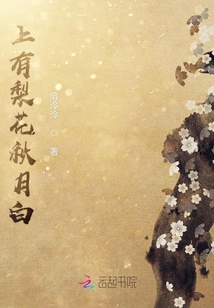 上有梨花秋月白
著
云起书院